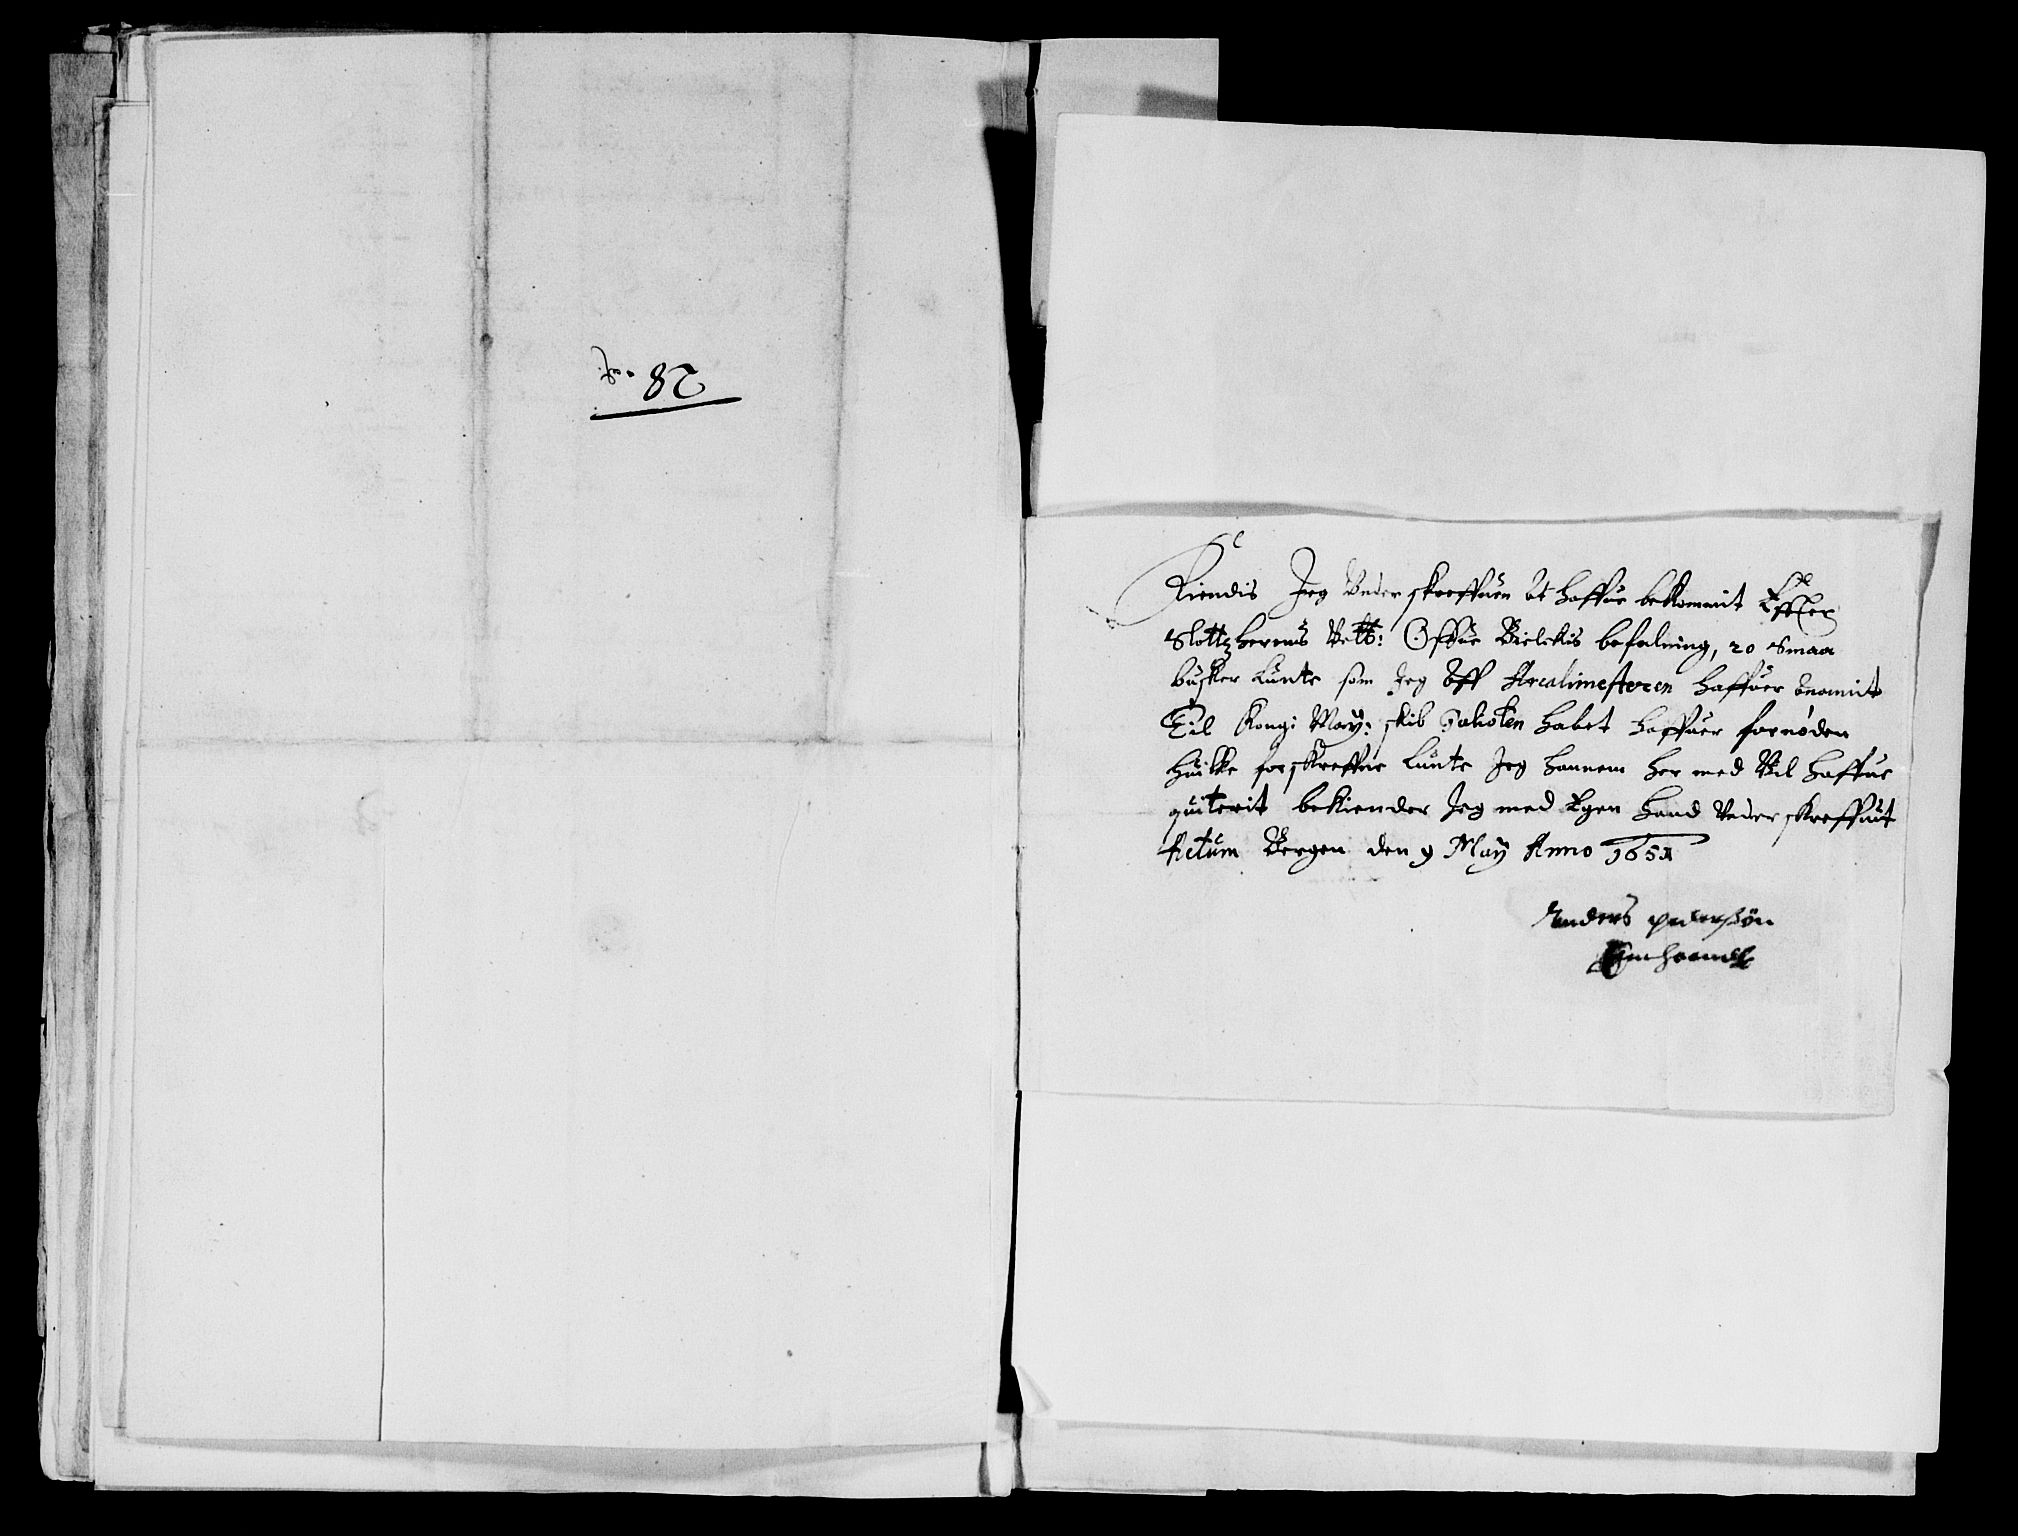 No. 82
Kiendis Jeg Underskreffuen at haffue bekommit Effter
Slottzherens Velb: Offue Bielckis befalning, 20 Smaa
busker Lunte som Jeg aff Arcalimesteren haffuer anamit
Til Kongl Mayj: skib habet haffuer fornøden
huilke forskreffne Lunte Jeg hannem her med Vil haffue
quiterit bekiender Jeg med Egen Haand Underskreffuit
Actum Bergen den 9 Maij Anno 1651
Anders pedersøn
Egenhaand